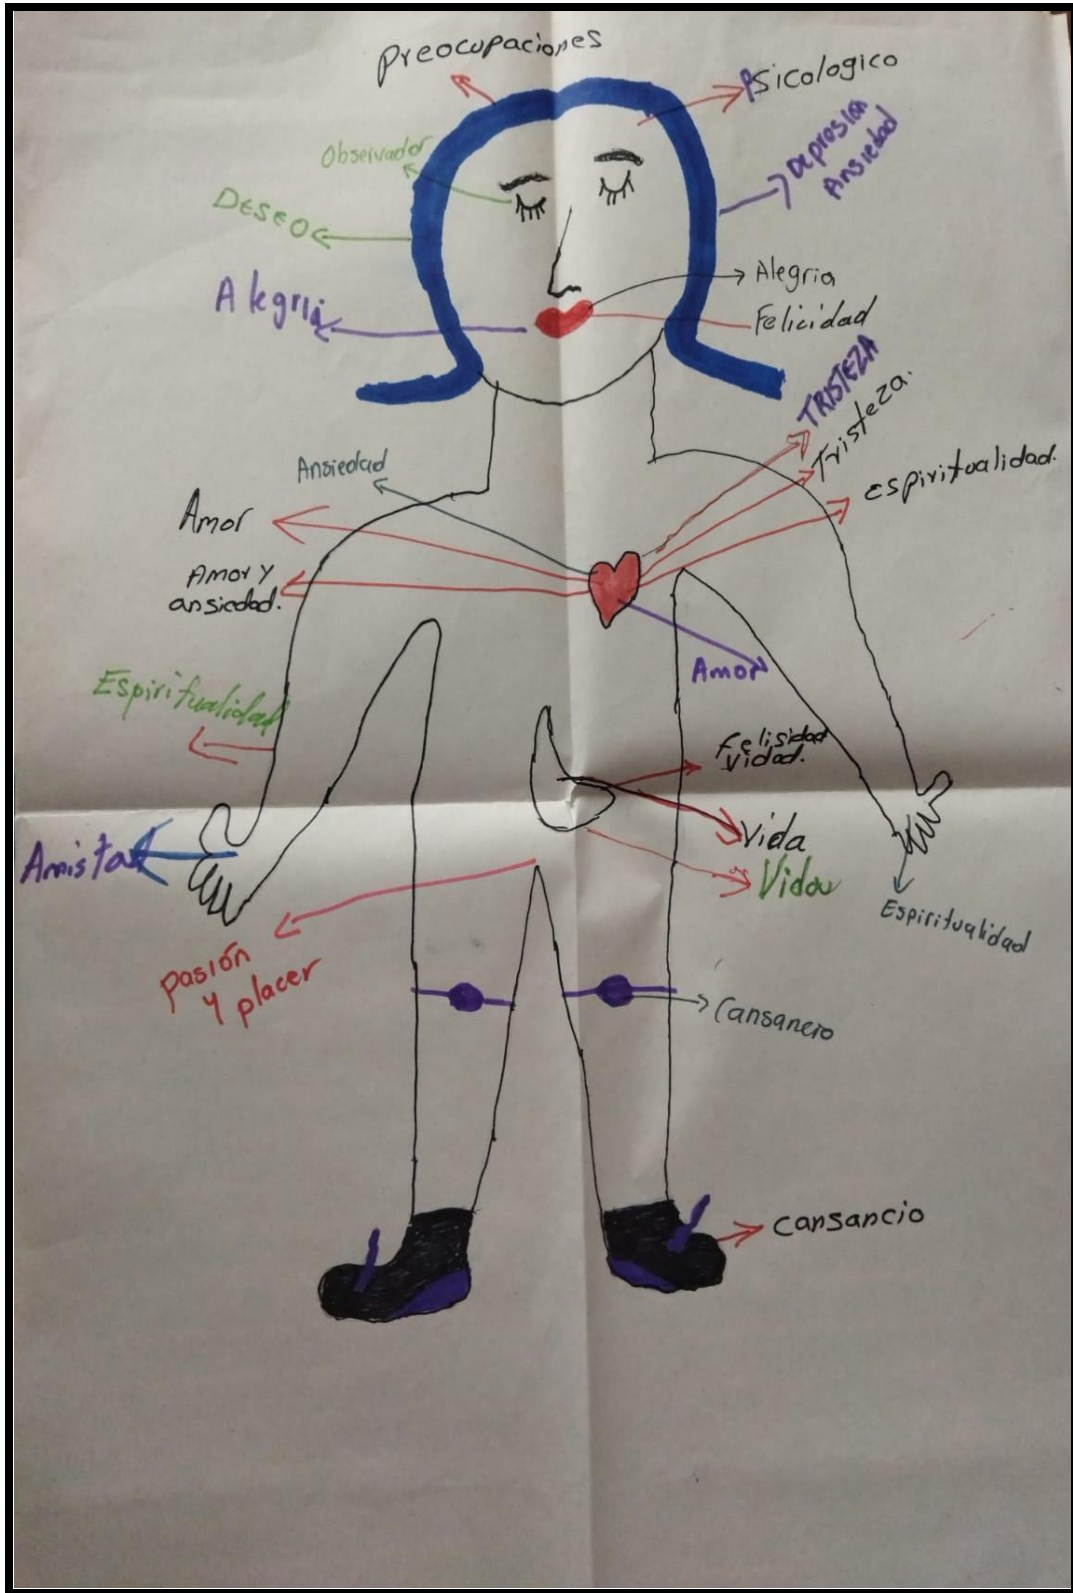 Preocupaciones
Psicologico
Observador
Depresión
Ansiedad
Deseo
Alegria
Alegria
Felicidad
TRISTEZA
Tristeza.
Ansiedad
espiritualidad.
Amor
Amor y
ansiedad.
Amor
Espiritualidad
felisidad
vidad.
Vida
Amistad
Vida
Espiritualidad
pasión
y placer
Cansancio
cansancio